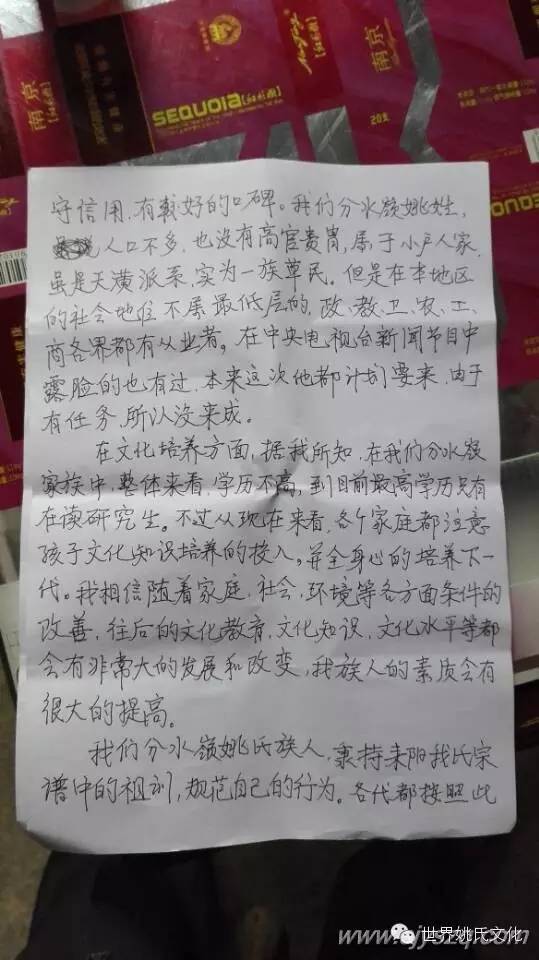 南京
SEQUOIA [红杉树]
20支
南京
SEQUOIA
守信用,有較好的口碑。我们分水嶺姚姓,
人口不多,也没有高官贵胄,属于小户人家,
虽是天潢派系,实为一族草民。但是在本地区
的社会地位不属最低层的,政、教、卫、农、工、
商各界都有从业者。在中央电视台新闻节目中
露脸的也有过,本来这次他都计划要来,由于
有任务,所以没来成。
在文化培养方面,据我所知,在我们分水嶺
家族中,整体来看,学历不高,到目前最高学历只有
在读研究生。不过从现在来看,各个家庭都注意
孩子文化知识培养的投入,并全身心的培养下一
代。我相信随着家庭、社会、环境等各方面条件的
改善,往后的文化教育,文化知识,文化水平等都
会有非常大的发展和改变,我族人的素质会有
很大的提高。
我们分水嶺姚氏族人,秉持耒阳我氏宗
谱中的祖训,规范自己的行为。各代都按照此
世界姚氏文化